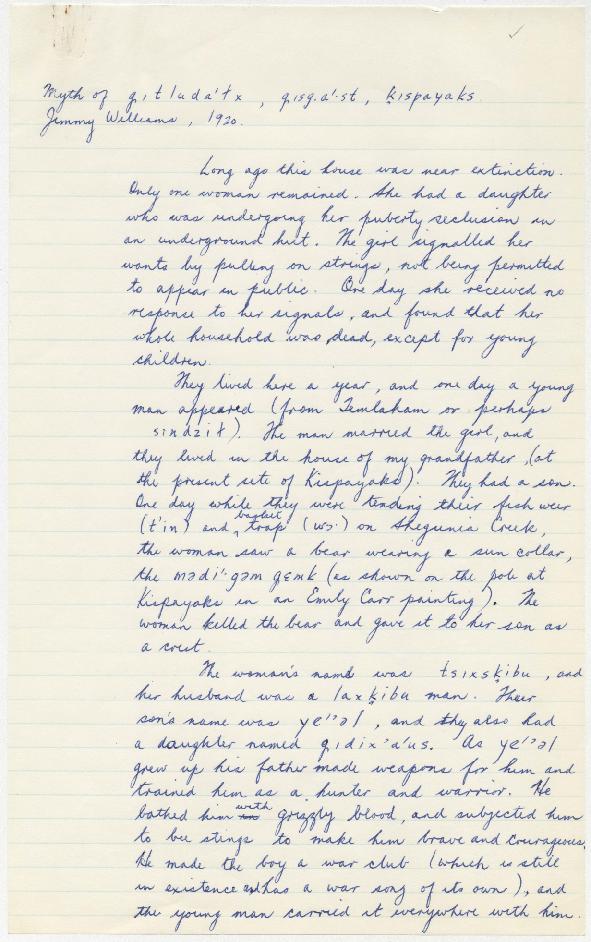 Myth of g̣ıtluda'ɬx, g̣ısg̣.a'·st, ḳıspayaks.
Jimmy Williams, 1920.
Long ago this house was near extinction.
Only one woman remained. She had a daughter
who was undergoing her puberty seclusion in
an underground hut. The girl signalled her
wants by pulling on strings, not being permitted
to appear in public. One day she received no
response to her signals, and found that her
whole household was dead, except for young
children.
They lived here a year, and one day a young
man appeared (from Temlaham or perhaps
sındzıɬ). The man married the girl, and
they lived in the house of my grandfather, (at
the present site of Kispayaks). They had a son.
One day while they were tending their fish weir
(t'in) and basket trap (wɔ·) on Shegunia Creek,
the woman saw a bear wearing a sun collar,
the mədi'·gəm gɛmk (as shown on the pole at
Kispayaks in an Emily Carr painting). The
woman killed the bear and gave it to her son as
a crest.
The woman's name was tsıxsḳibu, and
her husband was a laxḳibu man. Their
son's name was ye'ʼəl, and they also had
a daughter named g̣ıdix'a'us. As ye'ʼəl
grew up his father made weapons for him and
trained him as a hunter and warrior. He
bathed him with grizzly blood, and subjected him
to bee stings to make him brave and courageous.
He made the boy a war club (which is still
in existence and has a war song of its own), and
the young man carried it everywhere with him.